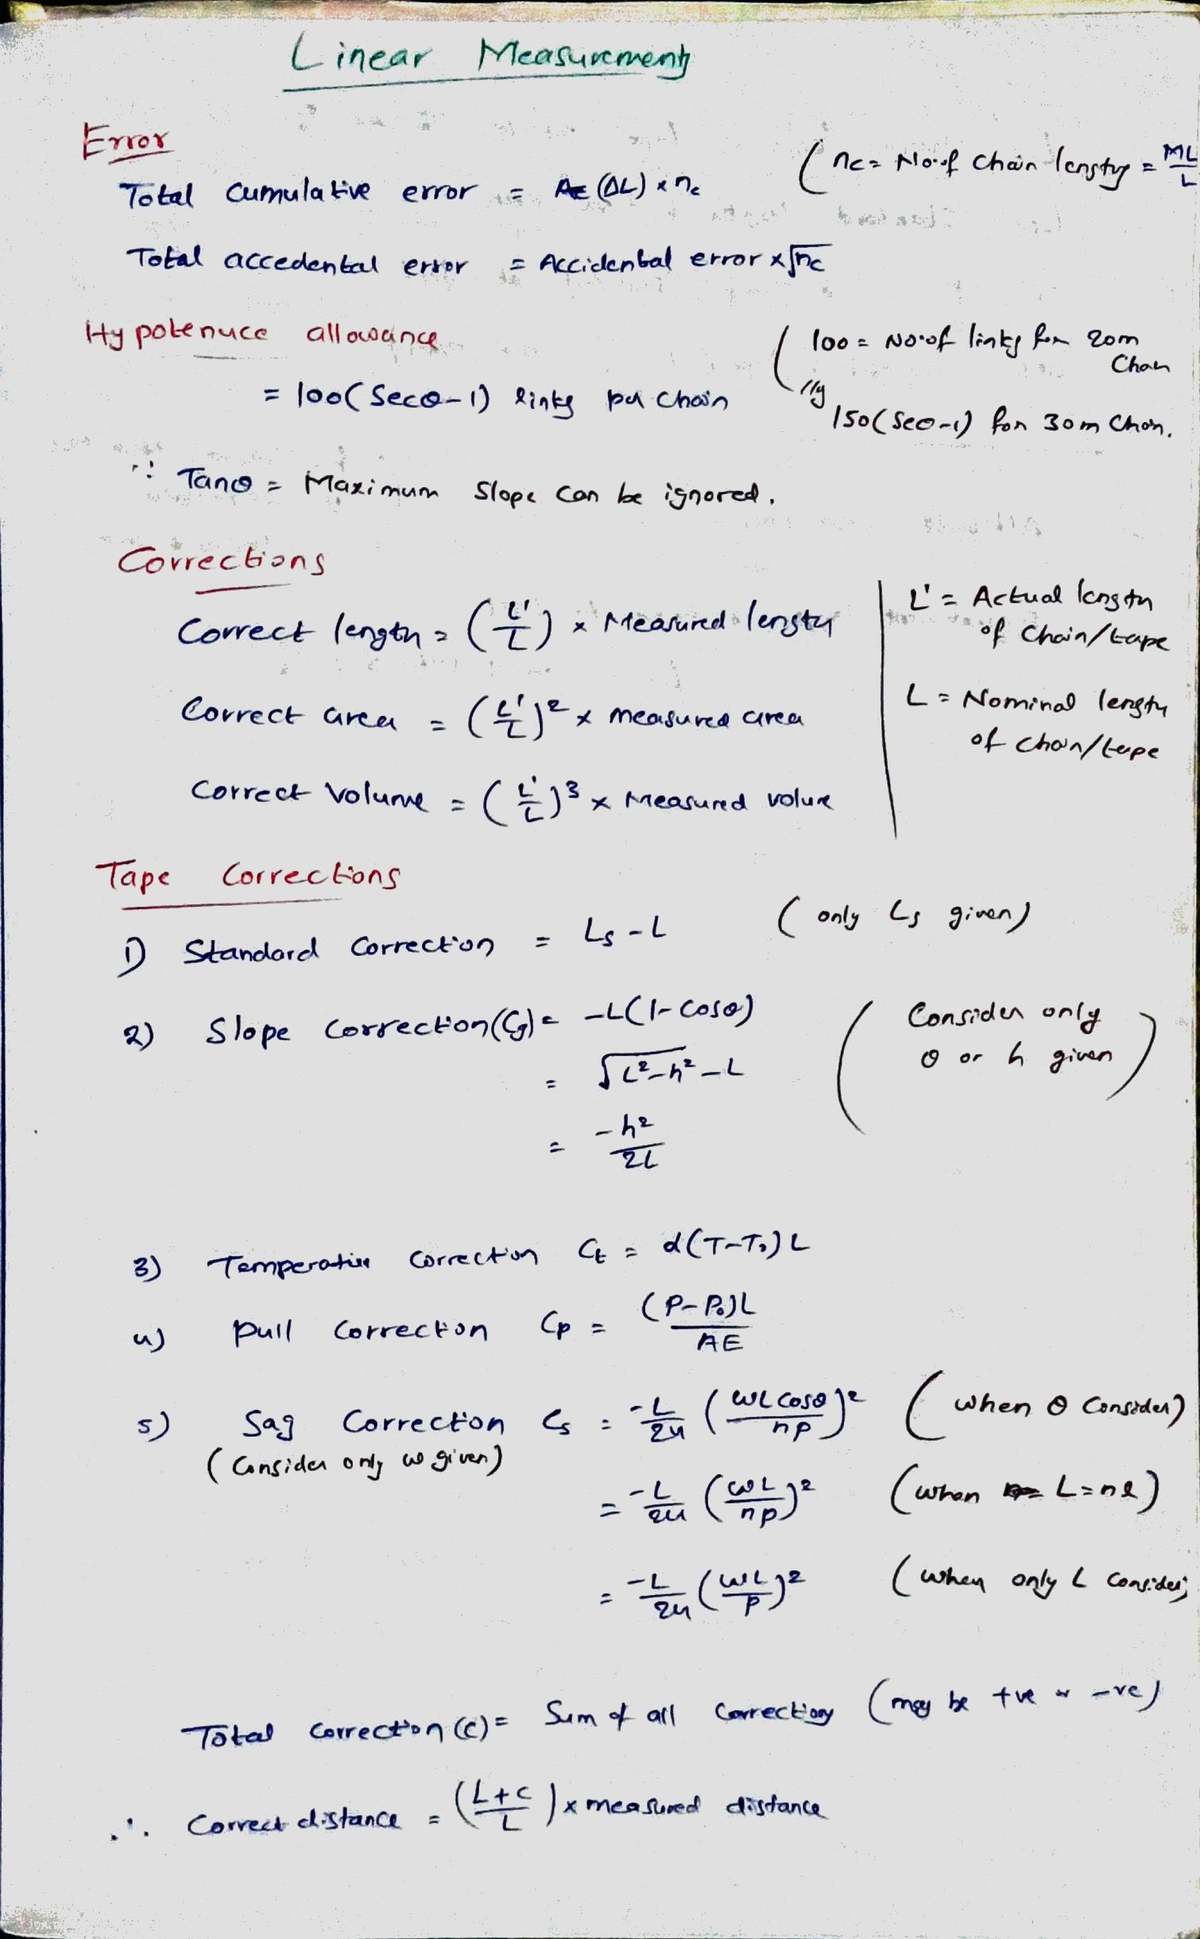 Linear Measurement
Error
Total Cumulative error = (ΔL) x nc (nc = No.of Chain length = ML/L
Total accedental error = Accidental error x √nc
Hypotenuce allowance (100 = No.of links for 20m Chain
= 100(Secθ-1) links per chain lly 150(Secθ-1) for 30m Chain.
∵ Tanθ = Maximum Slope can be ignored.
Corrections
Correct length = (L'/L) x Measured length
L' = Actual length of Chain/tape
Correct area = (L'/L)² x measured area
L = Nominal length of chain/tape
Correct Volume = (L'/L)³ x Measured volume
Tape Corrections
1) Standard Correction = Ls - L (only Ls given)
2) Slope Correction (Cg) = -L(1-cosθ) (Consider only θ or h given)
= √L²-h² - L
= -h²/2L
3) Temperature Correction Ct = α(T-T₀)L
4) Pull Correction Cp = (P-P₀)L/AE
5) Sag Correction Cs = -L/24 (WL cosθ/np)² (when θ Consider)
(Consider only ω given)
= -L/24 (ωL/np)² (when L=nl)
= -L/24 (WL/P)² (when only L consider)
Total correction (C) = Sum of all Corrections (may be +ve or -ve)
∴ Correct distance = (L+C/L) x measured distance